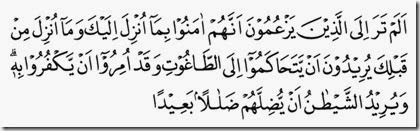 اَلَمْ تَرَ اِلَى الَّذِيْنَ يَزْعُمُوْنَ اَنَّهُمْ اٰمَنُوْا بِمَآ اُنْزِلَ اِلَيْكَ وَمَآ اُنْزِلَ مِنْ
قَبْلِكَ يُرِيْدُوْنَ اَنْ يَّتَحَاكَمُوْٓا اِلَى الطَّاغُوْتِ وَقَدْ اُمِرُوْٓا اَنْ يَّكْفُرُوْا بِهٖۗ
وَيُرِيْدُ الشَّيْطٰنُ اَنْ يُّضِلَّهُمْ ضَلٰلًا ۢ بَعِيْدًا